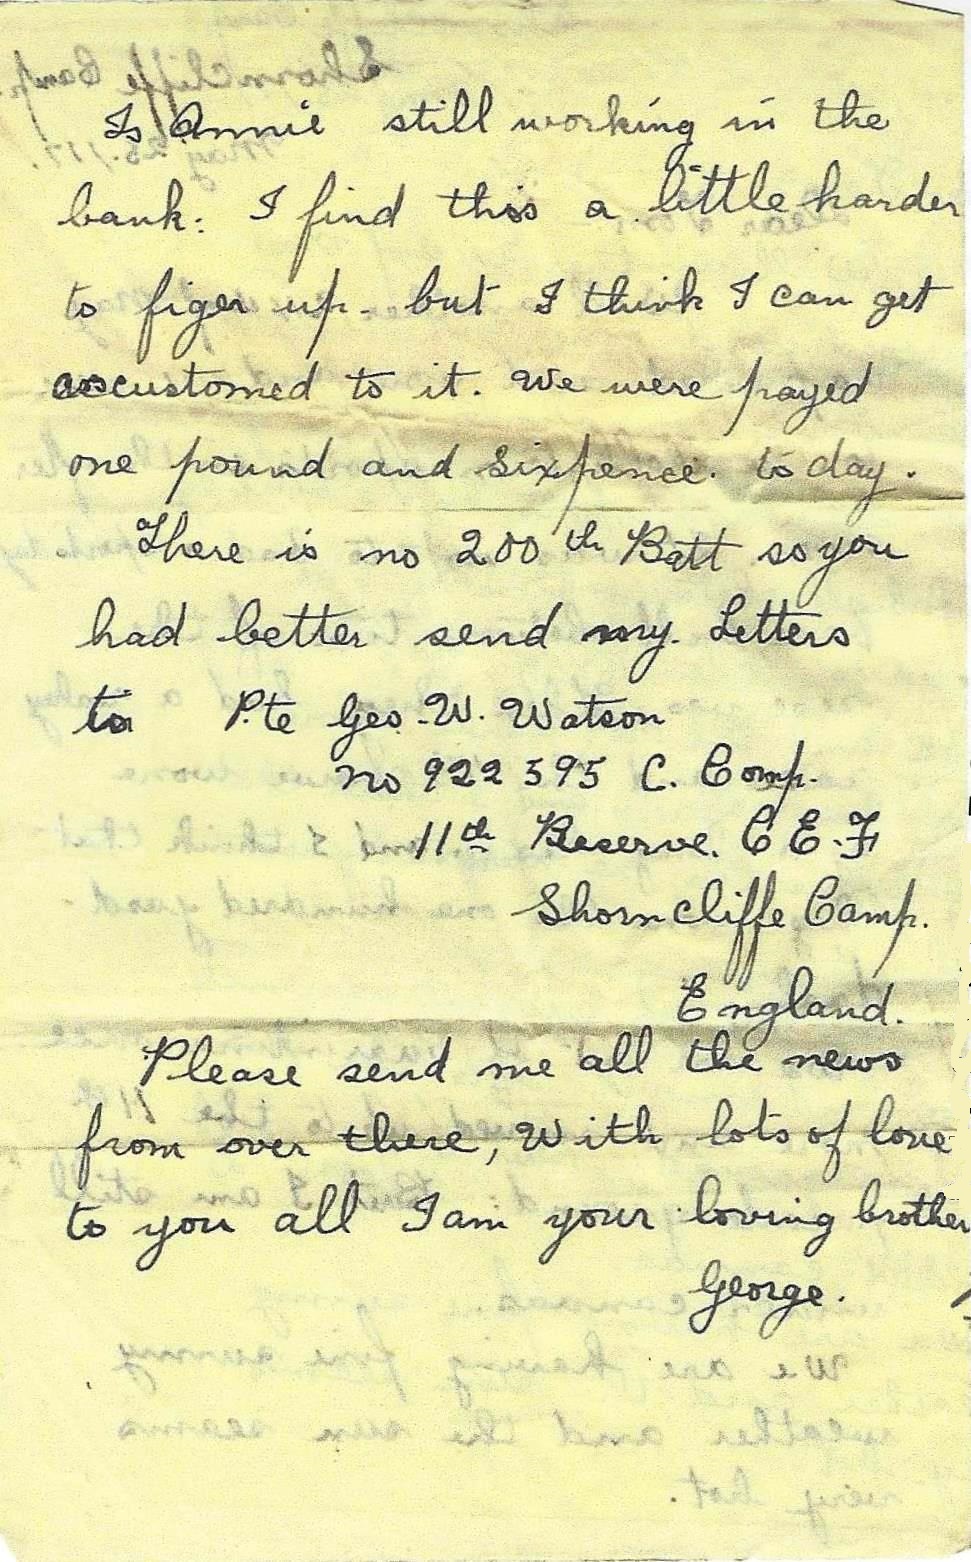 Is Annie still working in the
bank. I find this a little harder
to figer up. but I think I can get
accustomed to it. We were payed
one pound and sixpence. to day.
There is no 200th Batt so you
had better send my Letters
to Pte Geo. W. Watson
no 922595 C. Comp.
11th Reserve. C E. F
Shorncliffe Camp.
England.
Please send me all the news
from over there, With lots of love
to you all I am your loving brother
George.